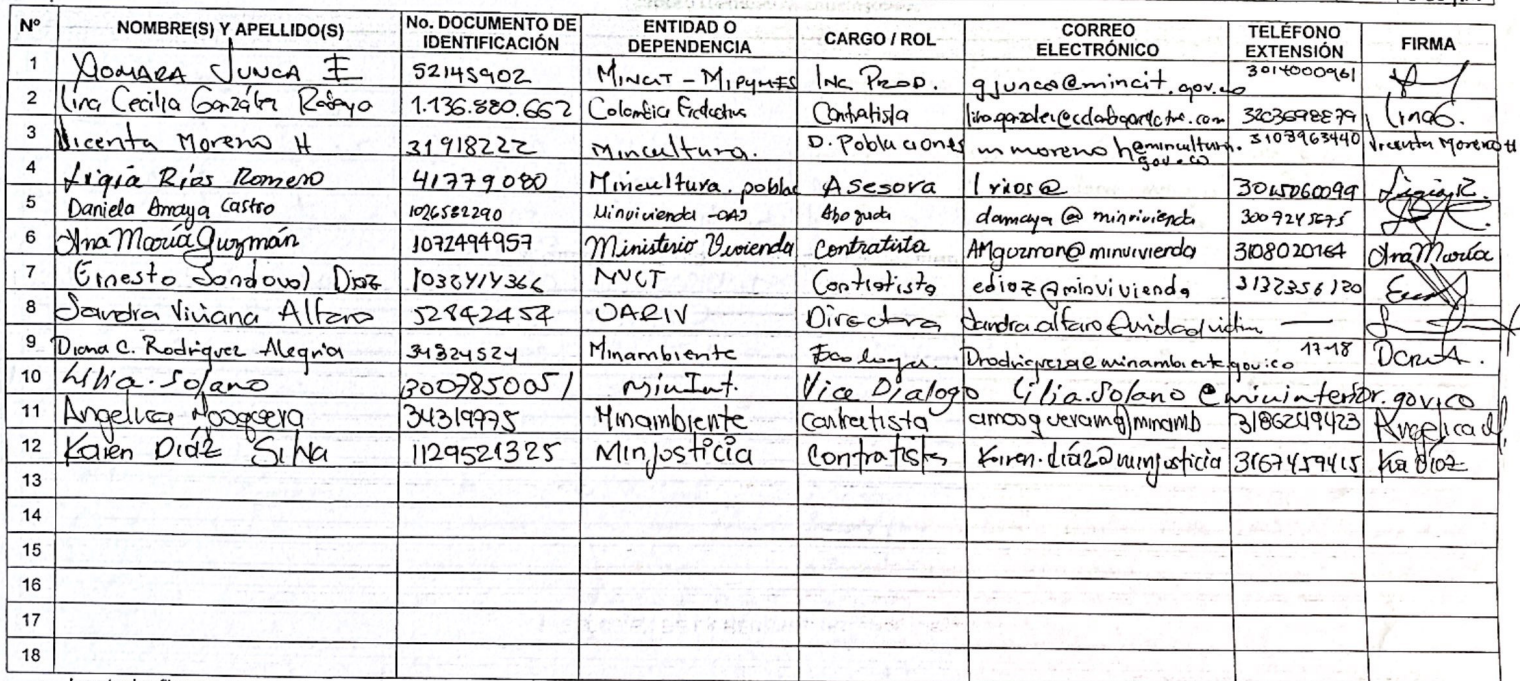 Nº NOMBRE(S) Y APELLIDO(S) No. DOCUMENTO DE IDENTIFICACIÓN ENTIDAD O DEPENDENCIA CARGO / ROL CORREO ELECTRÓNICO TELÉFONO EXTENSIÓN FIRMA
1 XIOMARA JUNCA E 52145902 MINCIT - MIPYMES INC PROD. gjunca@mincit.gov.co 30140000961
2 Lina Cecilia González 1.136.880.662 Colombia Contratista 3203698879 LinaG.
3 Vicenta Moreno H 31918222 Mincultura. D. Poblaciones m moreno h@mincultura.gov.co 3103963440 Vicenta Moreno H
4 Ligia Ríos Romero 41779080 Mincultura. poblac Asesora lrios@ 3015060099 Ligia R.
5 Daniela Amaya Castro 1026582290 Minvivienda -OAJ Abogada damaya @ minvivienda 3007245675
6 Ana María Guzmán 1072494957 Ministerio Vivienda Contratista AMguzman@minvivienda 3108020164 Ana María
7 Ernesto Sandoval Diaz 1032414366 MVCT Contratista ediaz@minvivienda 3132356120
8 Sandra Viviana Alfaro 52842454 UARIV Directora —
9 Diana C. Rodriguez Alegria 34324524 Minambiente Ecologa. Drodrigueza@minambiente.gov.co 17-18 DCRA.
10 Lilia. Solano 3007850051 MinInt. Vice Dialogo Lilia.Solano@mininterior.gov.co
11 Angelica Mosquera 34319775 Minambiente Contratista amosqueram@minamb 3186249423 Angelica M.
12 Karen Díaz Silva 1129521325 Minjusticia Contratista Karen.díaz@minjusticia 3167459415 Ka Díaz
13
14
15
16
17
18